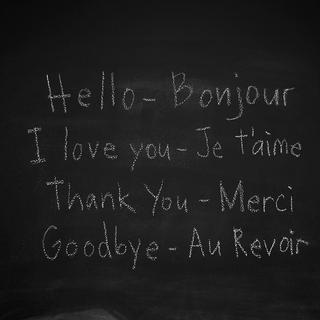 Hello- Bonjour
I love you- Je t'aime
Thank You - Merci
Goodbye - Au Revoir